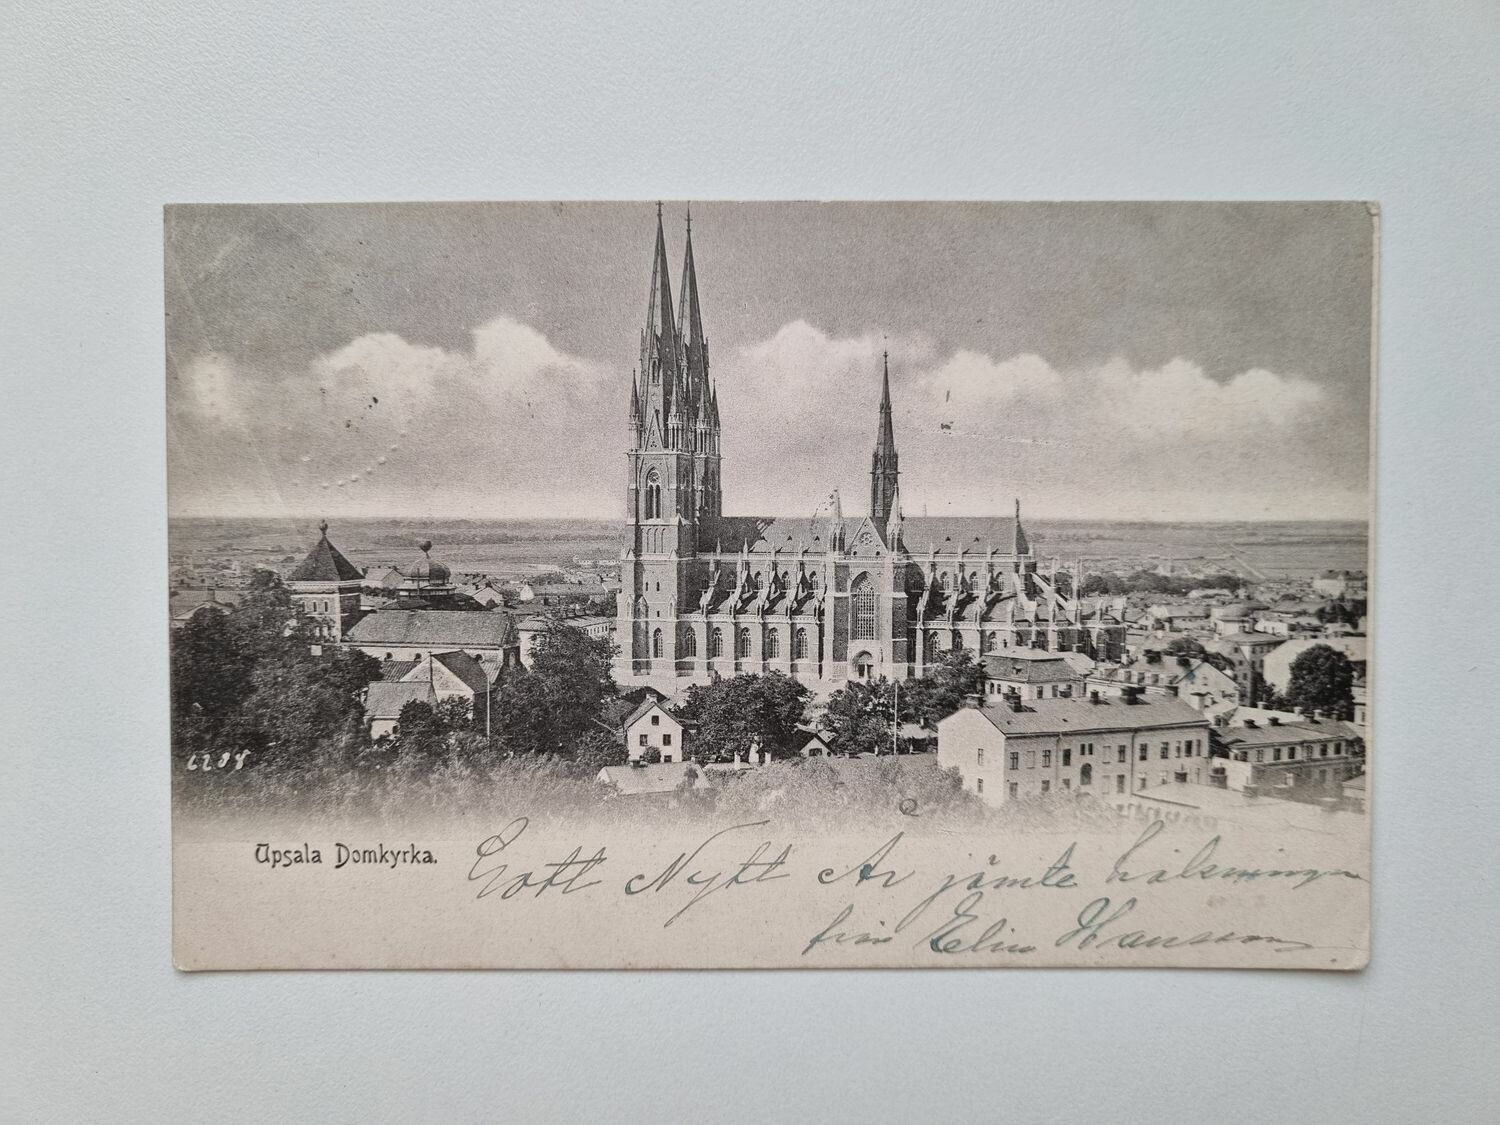 6204
Upsala Domkyrka.
Gott Nytt År jämte hälsningar
från Elin Hansson